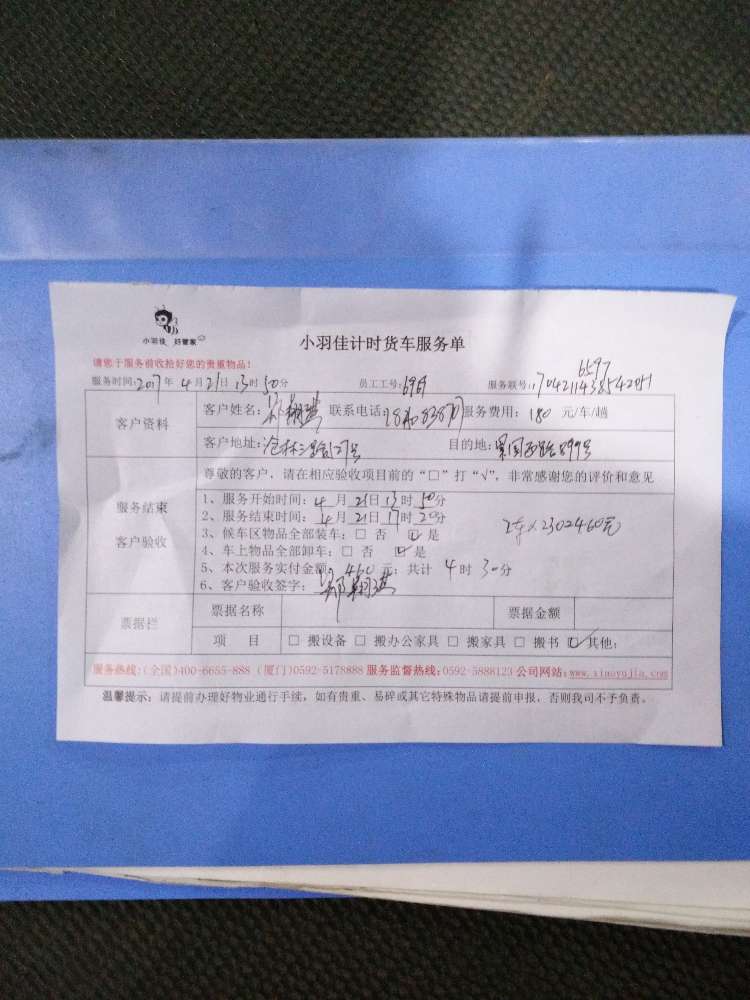 小羽佳 好管家
小羽佳计时货车服务单
请您于服务前收拾好您的贵重物品!
6597
服务时间:2017年 4月21日13时50分 员工工号: 服务联号:
客户资料
客户姓名: 联系电话: 服务费用: 180 元/车/趟
客户地址: 目的地:
服务结束
客户验收
尊敬的客户,请在相应验收项目前的“□”打“√”,非常感谢您的评价和意见
1、服务开始时间: 4月21日13时50分
2、服务结束时间: 4月21日17时20分
3、候车区物品全部装车: □ 否 ☑ 是
4、车上物品全部卸车: □ 否 ☑ 是
2车×230 2460元
5、本次服务实付金额: 460 元; 共计 4时30分
6、客户验收签字:
票据栏
票据名称 票据金额
项 目 □ 搬设备 □ 搬办公家具 □ 搬家具 □ 搬书 ☑ 其他:
服务热线:(全国)400-6655-888 (厦门)0592-5178888 服务监督热线:0592-5888123 公司网站:www.xiaoyujia.com
温馨提示:请提前办理好物业通行手续,如有贵重、易碎或其它特殊物品请提前申报,否则我司不予负责。